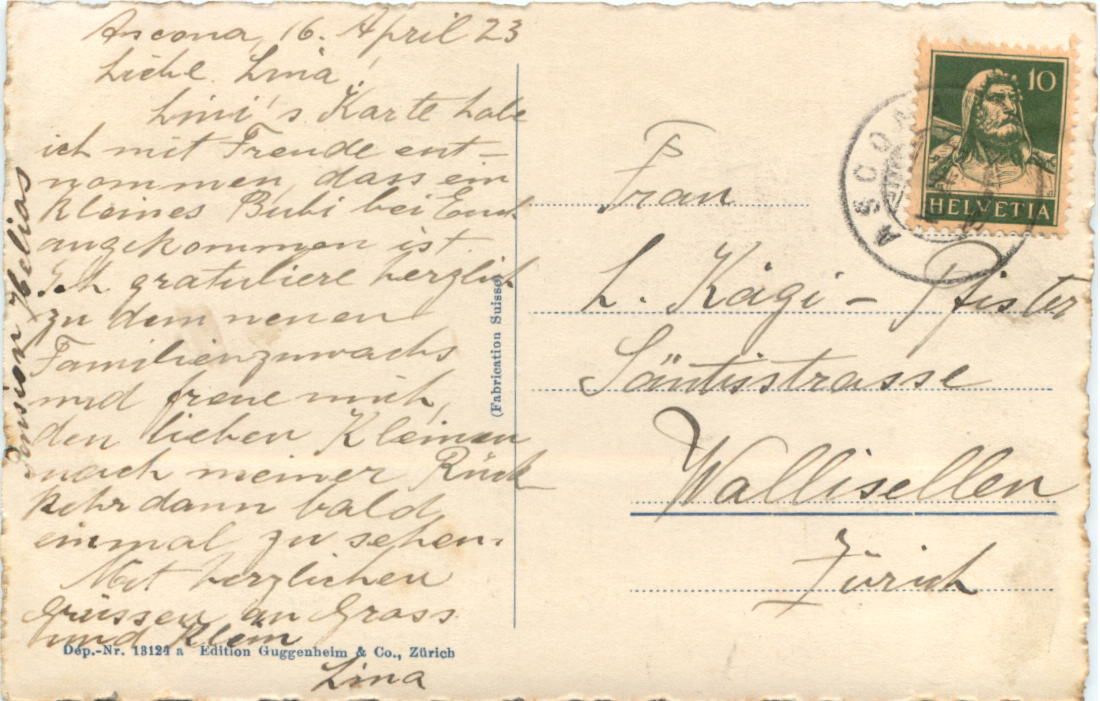 Ascona, 16. April 23
Liebe Lina!
Lini's Karte habe
ich mit Freude ent-
nommen, dass ein
kleines Bubi bei Euch
angekommen ist.
Ich gratuliere herzlich
zu dem neuen
Familienzuwachs
und freue mich,
den lieben Kleinen
nach meiner Rück-
kehr dann bald
einmal zu sehen.
Mit herzlichen
Grüssen an Gross
und Klein
Lina
Pension Helios
Dép.-Nr. 13124 a Edition Guggenheim & Co., Zürich
(Fabrication Suisse)
Frau
L. Kägi - Pfister
Säntisstrasse
Wallisellen
Zürich
10
HELVETIA
ASCONA